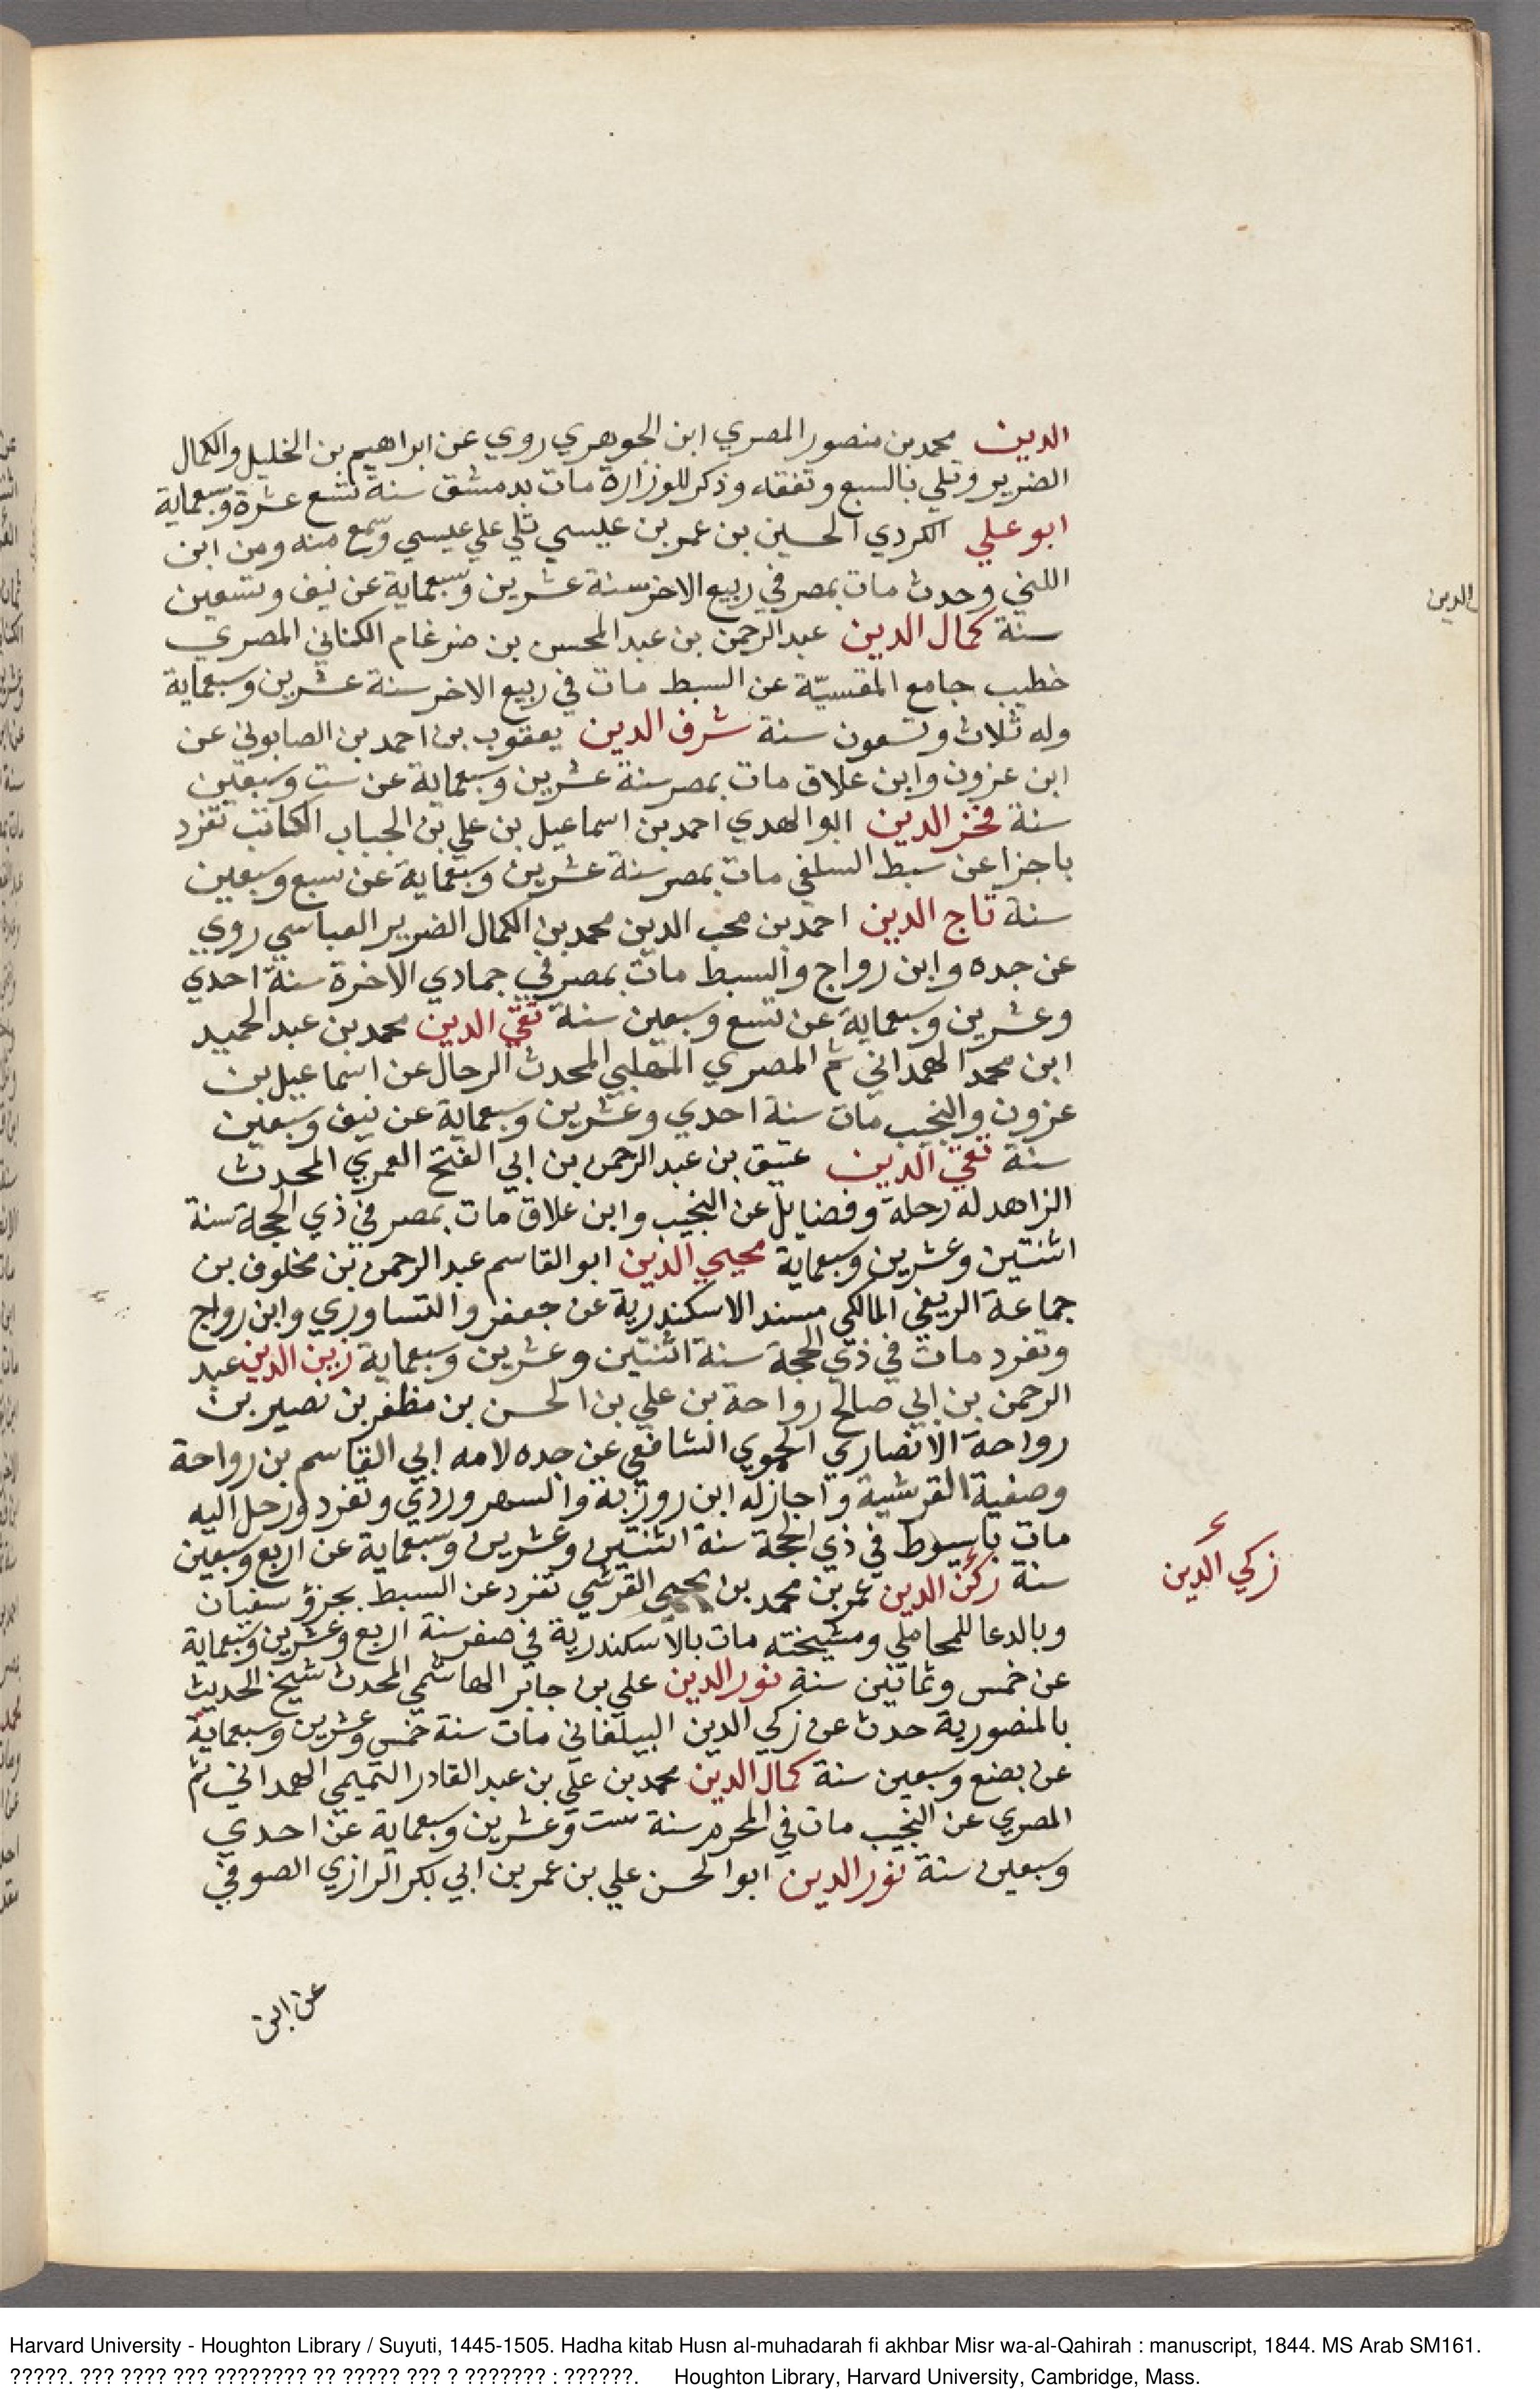 الدين محمد بن منصور المصري ابن الجوهري روي عن ابراهيم بن الخليل والكمال
الضرير وتلي بالسبع وتفقه وذكر للوزارة مات بدمشق سنة تسع عشرة وسبعماية
ابو علي الكردي الحسين بن عمر بن عيسي تلي علي عيسي وسمع منه ومن ابن
اللتي وحدث مات بمصر في ربيع الاخر سنة عشرين وسبعماية عن نيف وتسعين
سنة كمال الدين عبد الرحمن بن عبد المحسن بن ضرغام الكناني المصري
خطيب جامع المقسيّة عن السبط مات في ربيع الاخر سنة عشرين وسبعماية
وله ثلاث وتسعون سنة شرف الدين يعقوب بن احمد بن الصابوني عن
ابن عزون وابن علاق مات بمصر سنة عشرين وسبعماية عن ست وسبعين
سنة فخر الدين ابو الهدي احمد بن اسماعيل بن علي بن الجباب الكاتب تفرد
باجزا عن سبط السلفي مات بمصر سنة عشرين وسبعماية عن سبع وسبعين
سنة تاج الدين احمد بن محب الدين محمد بن الكمال الضرير العباسي روي
عن جده وابن رواج والسبط مات بمصر في جمادي الاخرة سنة احدي
وعشرين وسبعماية عن تسع وسبعين سنة تقي الدين محمد بن عبد الحميد
ابن محمد الهمداني ثم المصري المهلبي المحدث الرحال عن اسماعيل بن
عزون والنجيب مات سنة احدي وعشرين وسبعماية عن نيف وسبعين
سنة تقي الدين عتيق بن عبد الرحمن بن ابي الفتح العمري المحدث
الزاهد له رحلة وفضايل عن النجيب وابن علاق مات بمصر في ذي الحجة سنة
اثنتين وعشرين وسبعماية محيي الدين ابو القاسم عبد الرحمن بن مخلوف بن
جماعة الريغي المالكي مسند الاسكندرية عن جعفر والتساوري وابن رواج
وتفرد مات في ذي الحجة سنة اثنتين وعشرين وسبعماية زين الدين عبد
الرحمن بن ابي صالح رواحة بن علي بن الحسن بن مظفر بن نصير بن
رواحة الانصاري الحموي الشافعي عن جده لامه ابي القاسم بن رواحة
وصفية القرشية واجاز له ابن روزبة والسهروردي وتفرد ورحل اليه
مات باسيوط في ذي الحجة سنة اثنتين وعشرين وسبعماية عن اربع وسبعين
سنة ركن الدين عمر بن محمد بن يحيي القرشي تفرد عن السبط بجزؤ سفيان
زكي الدين
وبالدعا للمحاملي ومشيخته مات بالاسكندرية في صفر سنة اربع وعشرين وسبعماية
عن خمس وثمانين سنة نور الدين علي بن جابر الهاشمي المحدث شيخ الحديث
بالمنصورية حدث عن زكي الدين البيلقاني مات سنة خمس وعشرين وسبعماية
عن بضع وسبعين سنة كمال الدين محمد بن علي بن عبد القادر التميمي الهمداني ثم
المصري عن النجيب مات في المحرم سنة ست وعشرين وسبعماية عن احدي
وسبعين سنة نور الدين ابو الحسن علي بن عمر بن ابي بكر الرازي الصوفي
عن ابن
الدين
Harvard University - Houghton Library / Suyuti, 1445-1505. Hadha kitab Husn al-muhadarah fi akhbar Misr wa-al-Qahirah : manuscript, 1844. MS Arab SM161.
?????. ??? ???? ??? ???????? ?? ????? ??? ? ??????? : ??????. Houghton Library, Harvard University, Cambridge, Mass.